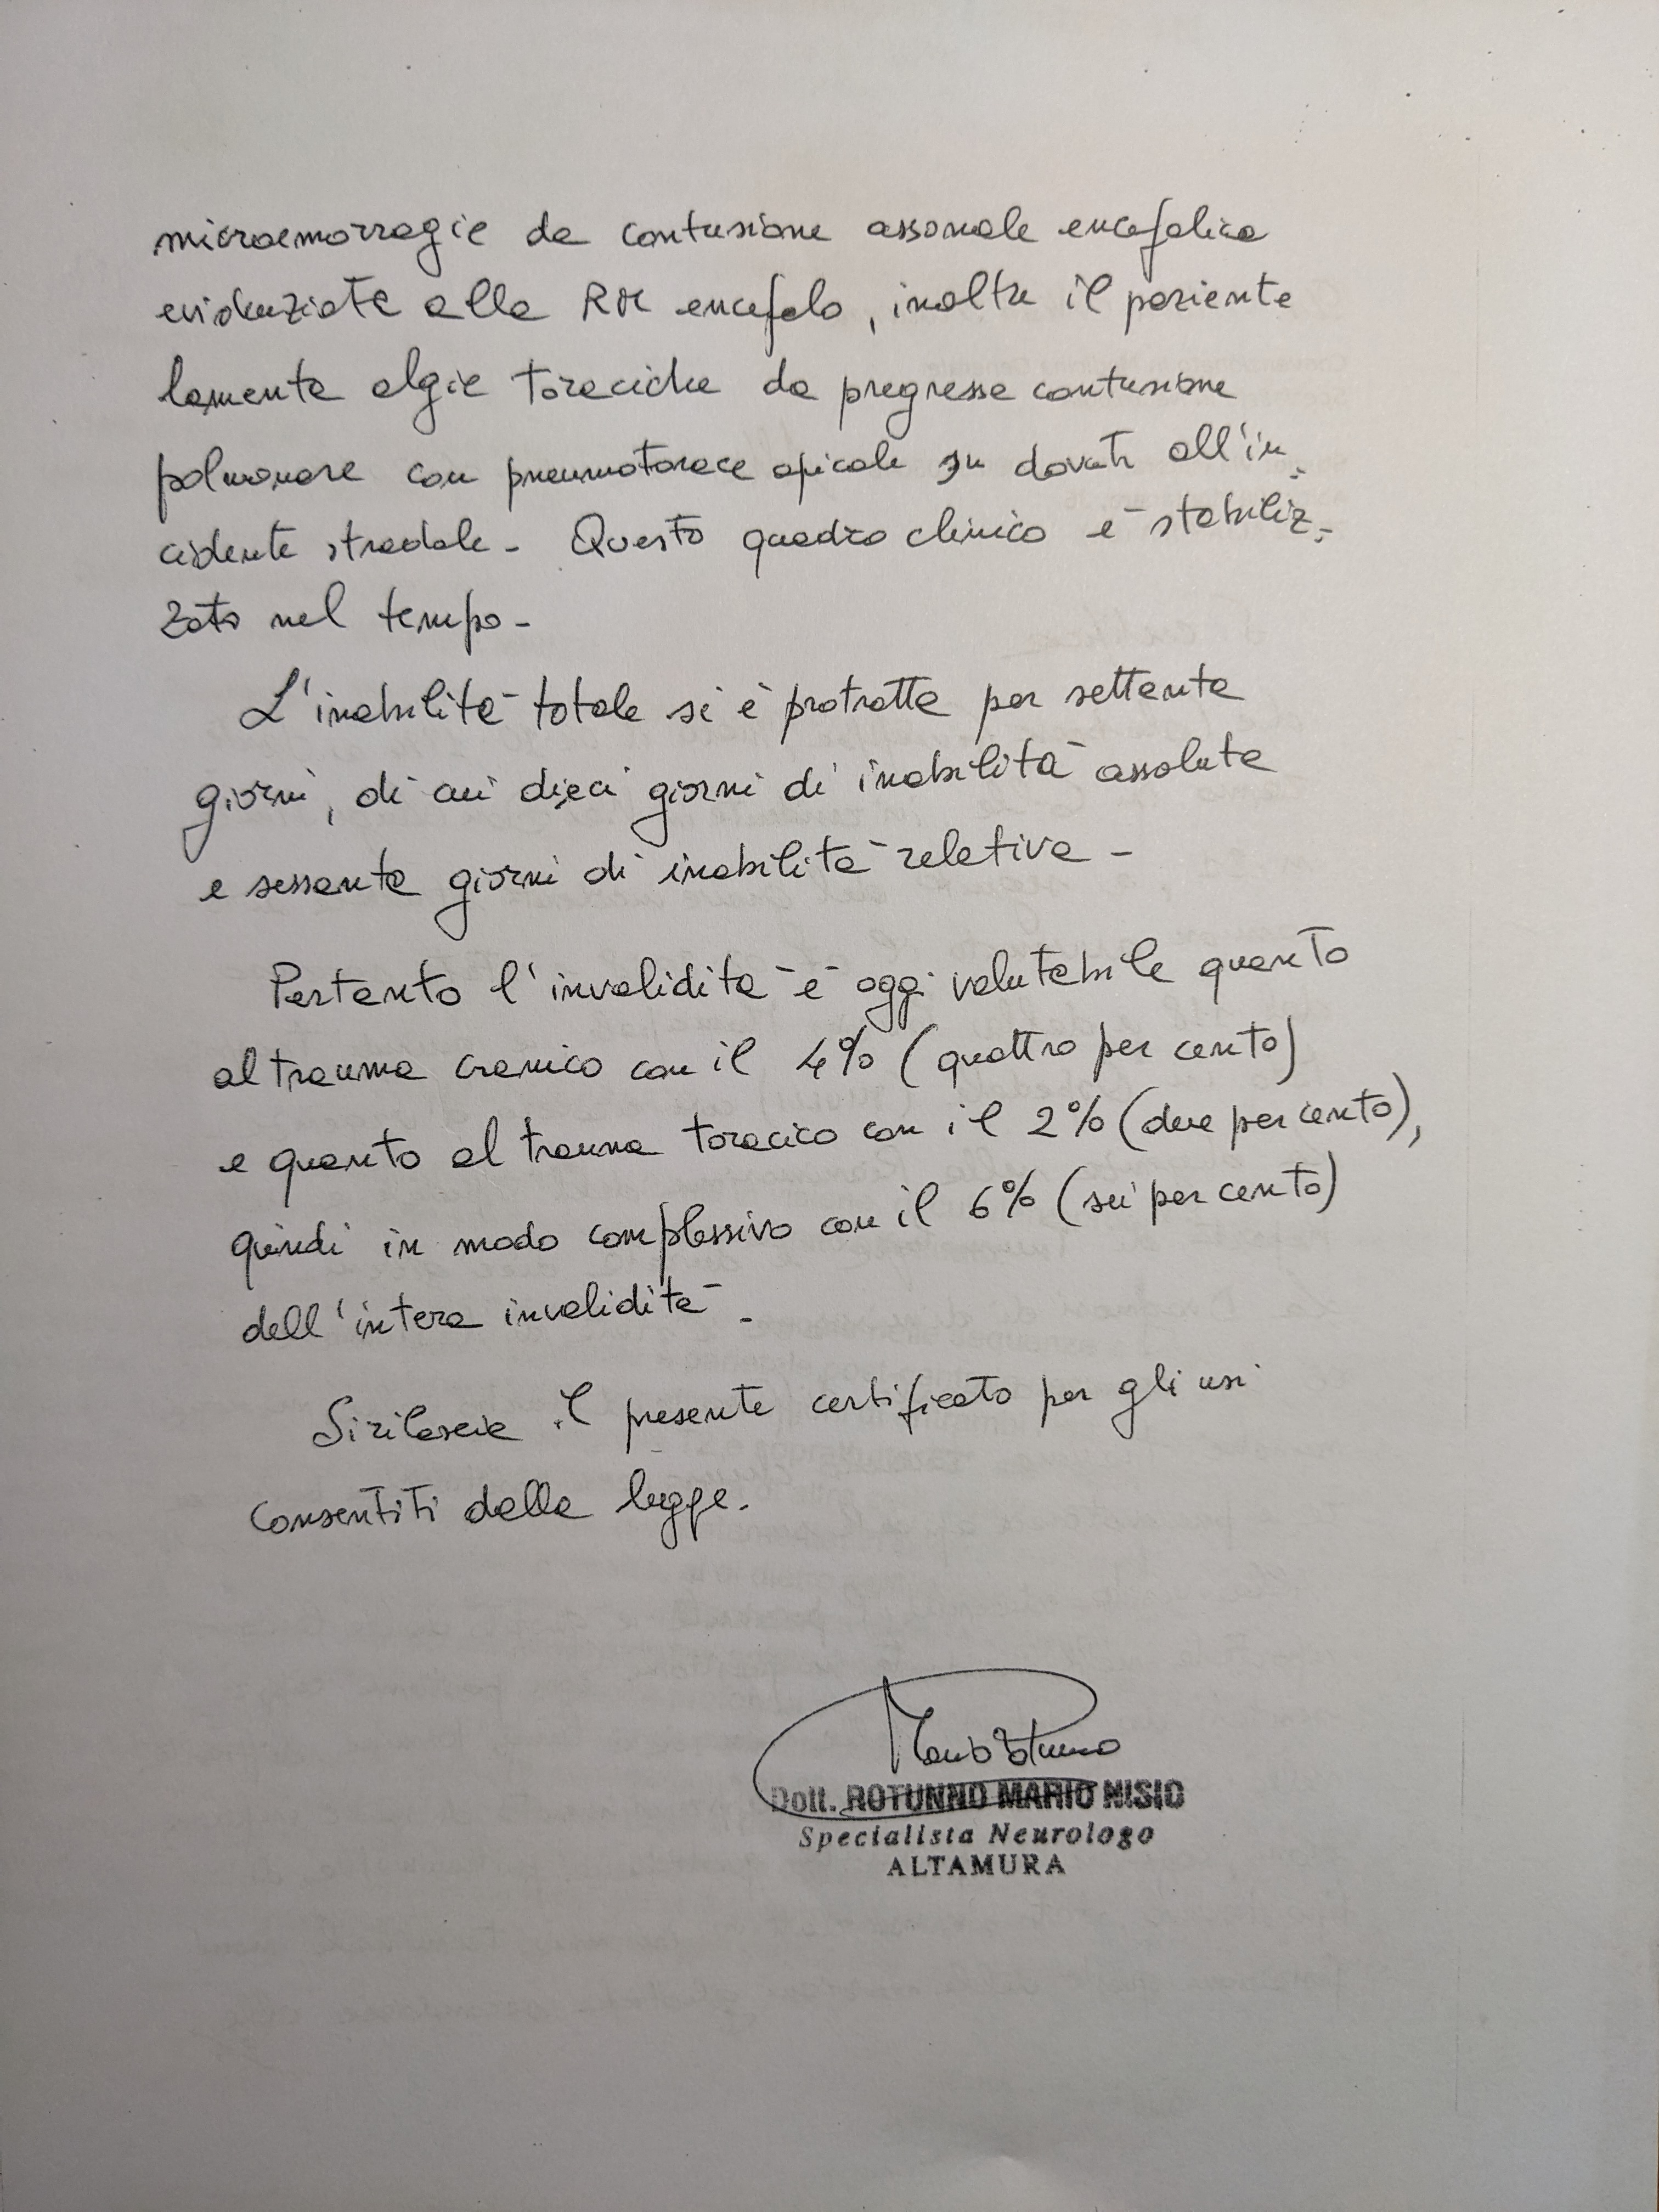 microemorragie da contusione assonale encefalica
evidenziate alla RM encefalo, inoltre il paziente
lamenta algie toraciche da pregressa contusione
polmonare con pneumotorace apicale sn dovuti all'in-
cidente stradale - Questo quadro clinico è stabiliz-
zato nel tempo -
L'inabilità totale si è protratta per settanta
giorni, di cui dieci giorni di inabilità assoluta
e sessanta giorni di inabilità relativa -
Pertanto l'invalidità è oggi valutabile quanto
al trauma cranico con il 4% (quattro per cento)
e quanto al trauma toracico con il 2% (due per cento),
quindi in modo complessivo con il 6% (sei per cento)
dell'intera invalidità -
Si rilascia il presente certificato per gli usi
consentiti dalla legge.
Mario Rotunno
Dott. ROTUNNO MARIO NISIO
Specialista Neurologo
ALTAMURA